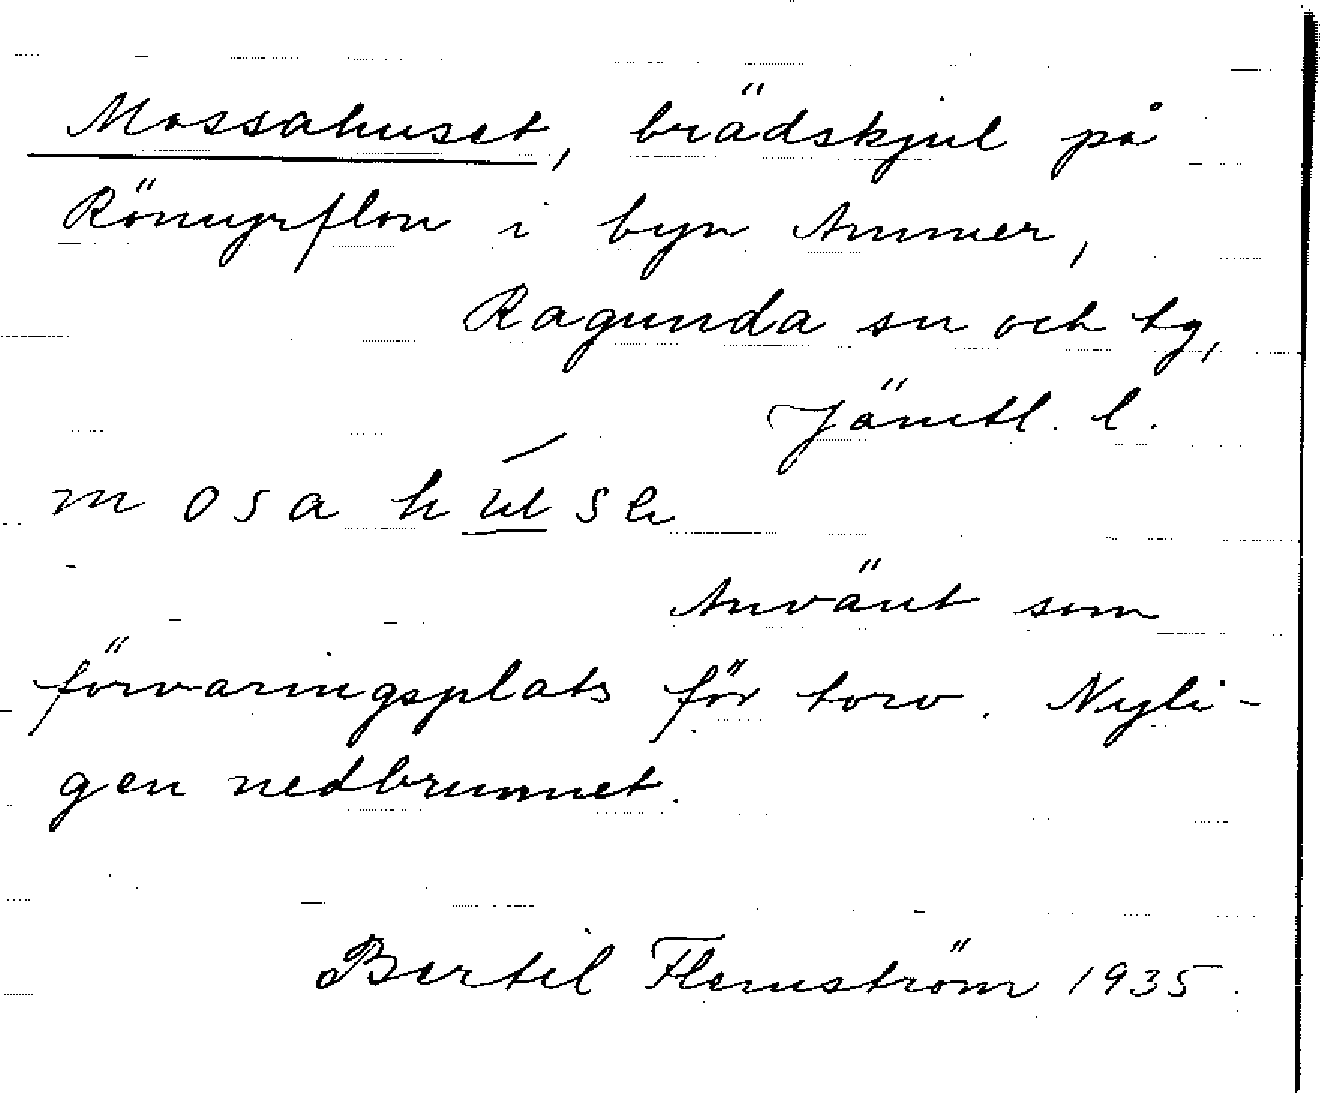 Mossahuset, brädskjul på
Römyrflon i byn Ammer,
Ragunda sn och tg,
Jämtl. l.
mosa
Använt som
förvaringsplats för torv. Nyli-
gen nedbrunnet.
Bertil Flemström 1935.